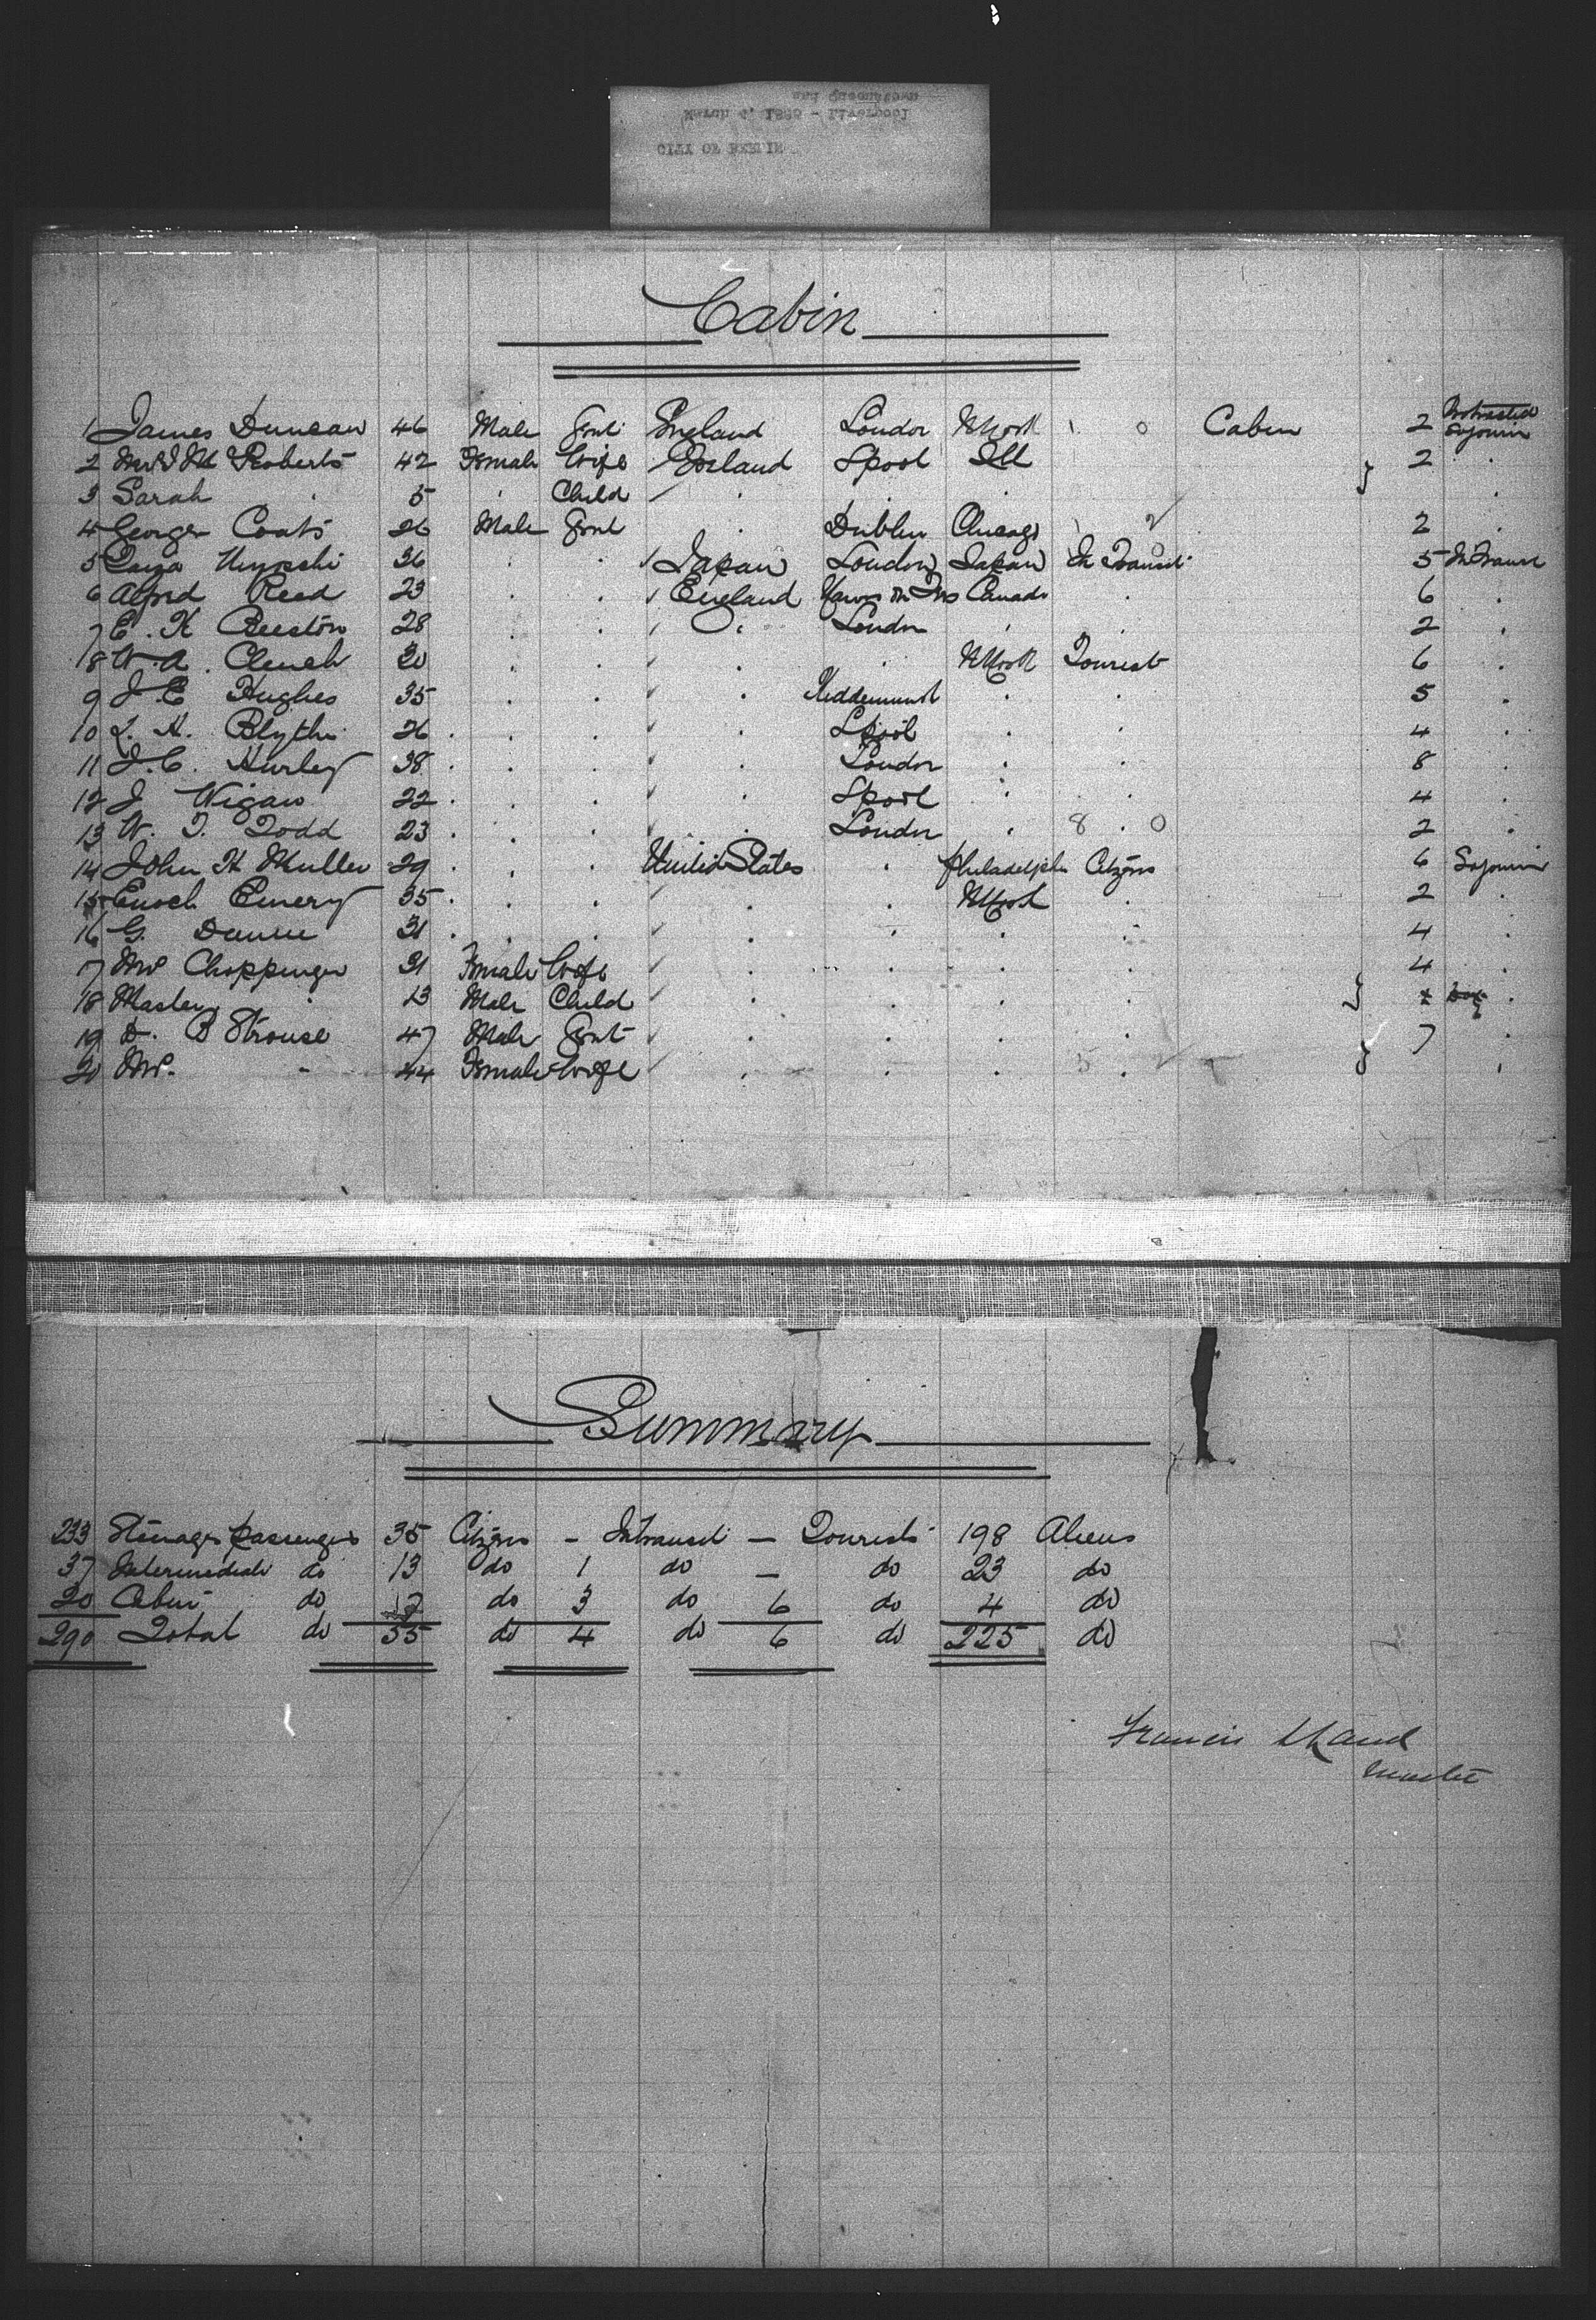 CITY OF BERLIN
March 4, 1889 - Liverpool
and Queenstown
Cabin
1 James Duncan 46 Male Gent England London NYork 1 0 Cabin 2 Protracted Sojourn
2 Mrs Roberts 42 Female Wife Ireland Lpool Ill 2
3 Sarah " 5 " Child
4 George Coats 26 Male Gent Dublin Chicago 2
5 36 Japan London Japan In Transit 5 In Transit
6 Alfred Reed 23 England Canada 6
7 E. H Beeston 28 London 2
8 W. A. Clench 30 NYork Tourist 6
9 J E Hughes 35 5
10 L. H. Blythe 26 Lpool 4
11 J. C. Hurley 38 London 8
12 J Wigan 22 Lpool 4
13 W. T. Todd 23 London 8 0 2
14 John H Muller 29 United States Philadelphia Citizens 6 Sojourn
15 Enoch Emery 35 NYork 2
16 G. 31 4
17 Mrs Choppinger 31 Female Wife 4
18 Master " 13 Male Child
19 D. B Strouse 47 Male Gent 7
20 Mrs. " 44 Female Wife 5
Summary
233 Steerage passengers 35 Citizens - Intransit - Tourists 198 Aliens
37 Intermediate do 13 do 1 do - do 23 do
20 Cabin do 7 do 3 do 6 do 4 do
290 Total do 55 do 4 do 6 do 225 do
Francis Land
Master